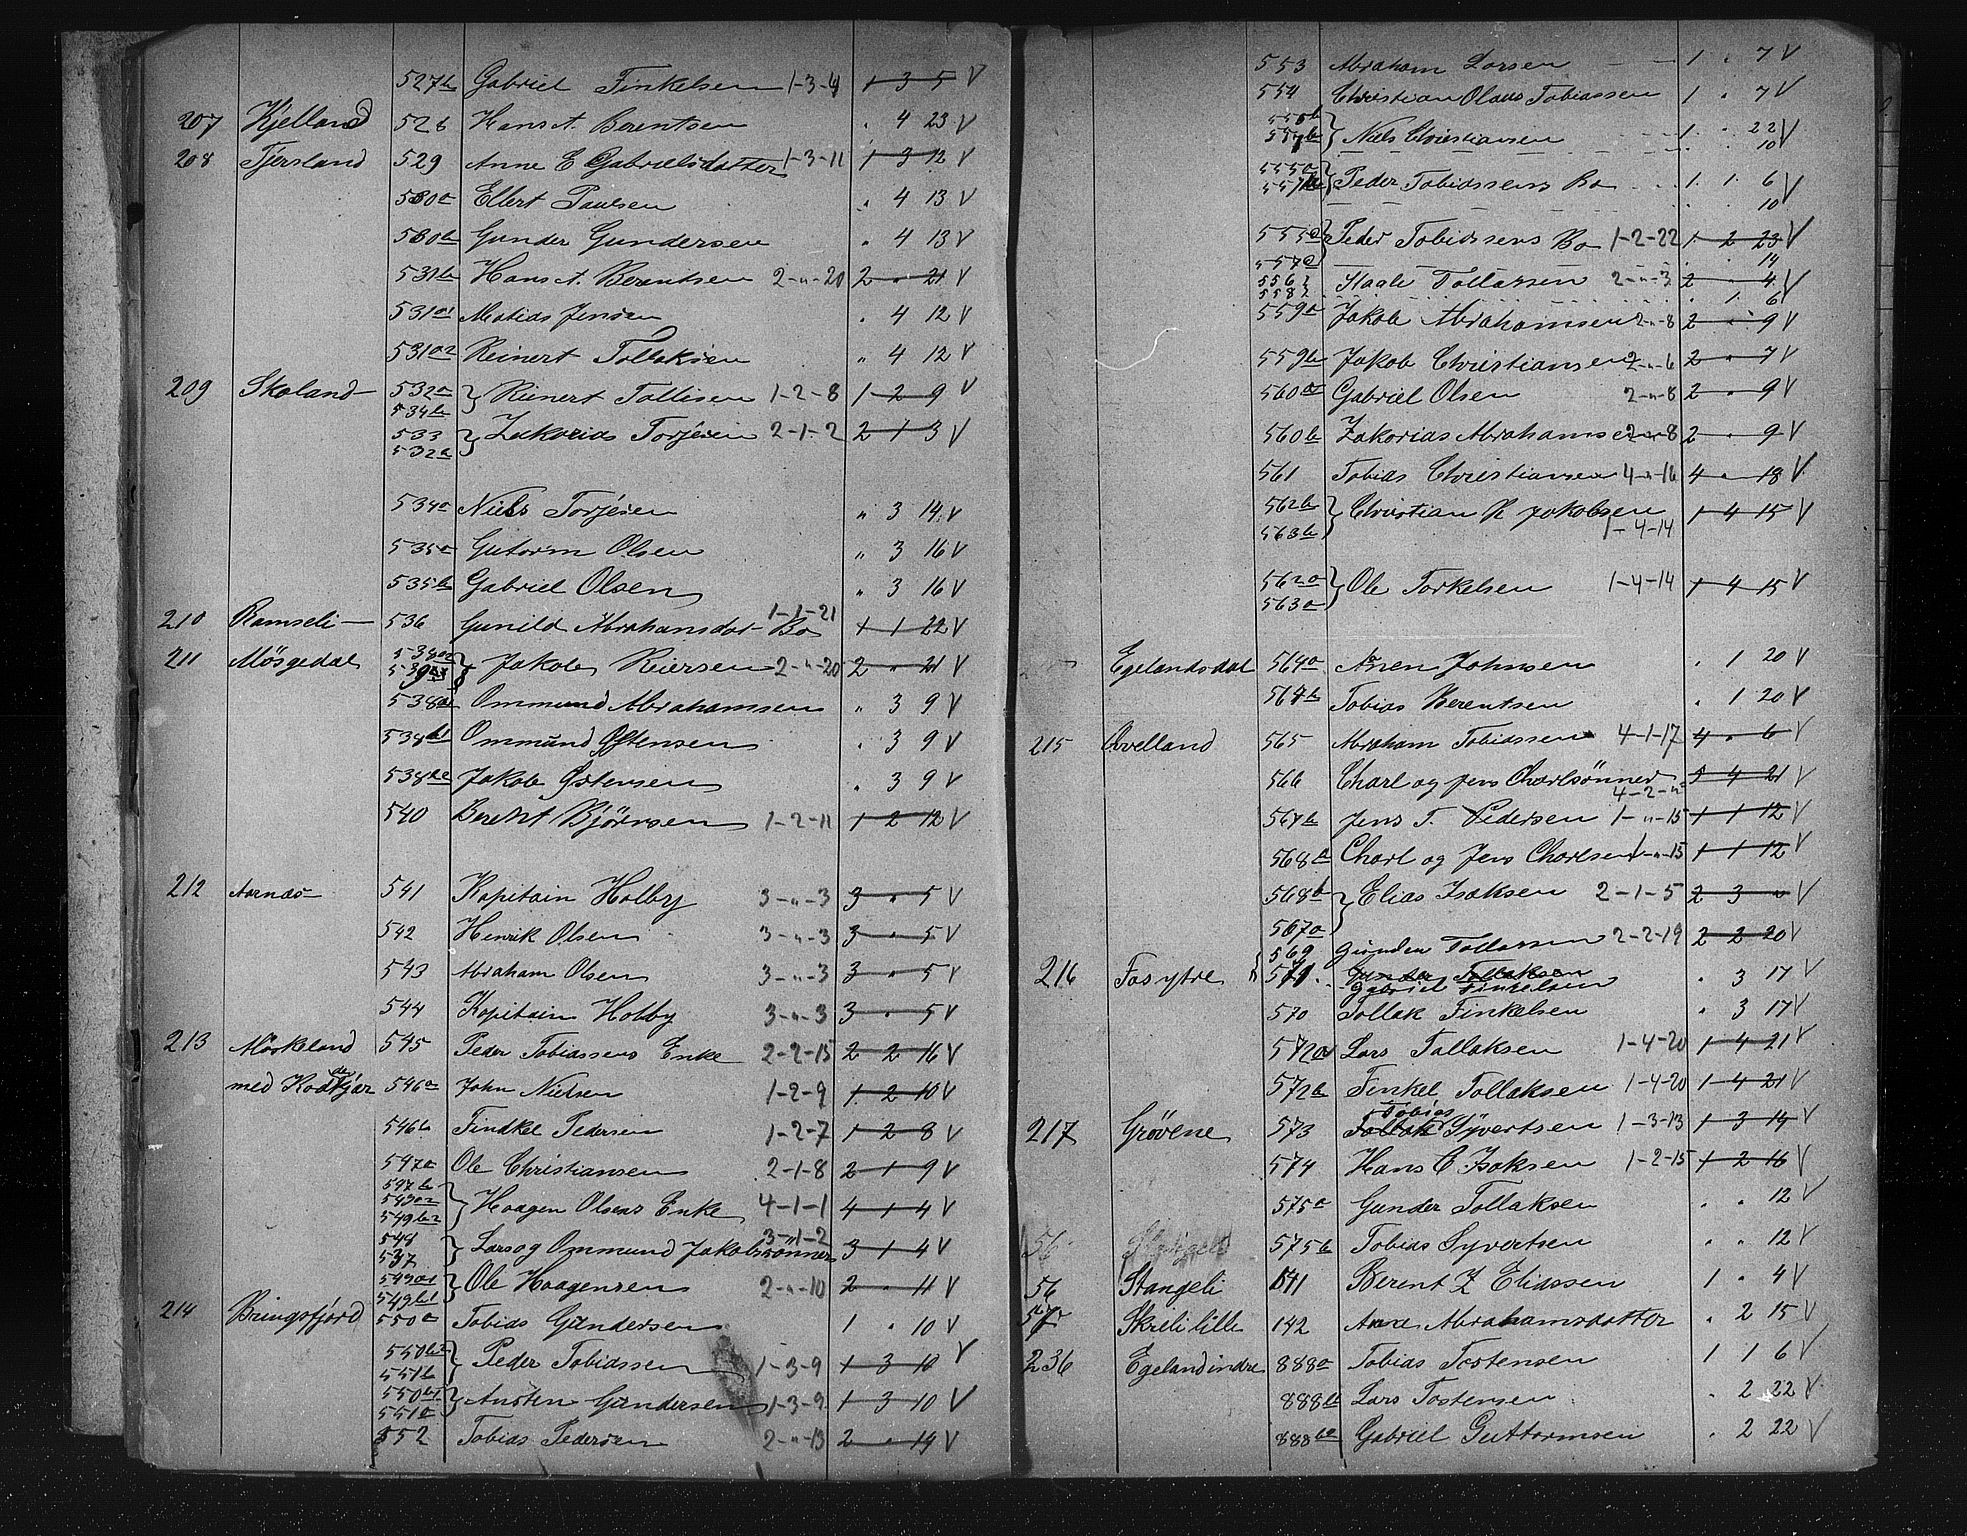 527b Gabriel Finkelsen 1-3-4 1 3 5 V
207 Kjelland 528 Hans A. Berentsen " 4 23 V
208 Tjersland 529 Anne E Gabrielsdatter 1-3-11 1 3 12 V
530a Ellert Paulsen " 4 13 V
530b Gunder Gundersen " 4 13 V
531b Hans A. Berentsen 2-"-20 2 " 21 V
531a1 Matias Jensen " 4 12 V
531a2 Reinert Tollaksen " 4 12 V
209 Skoland 532a 534b } Reinert Tollisen 1-2-8 1 2 9 V
533 532b } Zakarias Torjesen 2-1-2 2 1 3 V
534a Niels Torjesen " 3 14 V
535a Gutorm Olsen " 3 16 V
535b Gabriel Olsen " 3 16 V
210 Ramseli 536 Gunild Abrahamsdat Bo 1-1-21 1 1 22 V
211 Møsgedal Jakob Reiersen 2-"-20 2 " 21 V
Ommund Abrahamsen " 3 9 V
538b1 Ommund Østensen " 3 9 V
Jakob Østensen " 3 9 V
540 Berent Bjørnsen 1-2-11 1 2 12 V
212 Aarnæs 541 Kapitain Holby 3-"-3 3 " 5 V
542 Henrik Olsen 3-"-3 3 " 5 V
543 Abraham Olsen 3-"-3 3 " 5 V
544 Kapitain Holby 3-"-3 3 " 5 V
213 Møskeland 545 Peder Tobiassens Enke 2-2-15 2 2 16 V
med 546a John Nielsen 1-2-9 1 2 10 V
546b Findkel Pedersen 1-2-7 1 2 8 V
547a Ole Christiansen 2-1-8 2 1 9 V
547b 549a2 549b2 } Haagen Olsens Enke 4-1-1 4 1 4 V
548 537 } Lars og Ommund Jakobsønner 3-1-2 3 1 4 V
549a1 549b1 } Ole Haagensen 2-"-10 2 " 11 V
214 Bringsfjord 550a Tobias Gundersen 1 " 10 V
550b2 551b } Peder Tobiassen 1-3-9 1 3 10 V
550b1 551a } Austen Gundersen 1-3-9 1 3 10 V
552 Tobias Pedersen 2-"-13 2 " 14 V
553 Abraham Larsen 1 " 7 V
554 Christian Olaus Tobiassen 1 " 7 V
555b 557b } Niels Christiansen 1 " 22 V
10
Peder Tobiassens Bo 1 1 6 V
10
Peder Tobiassens Bo 1-2-22 1 2 23 V
14
556 558 } Staale Tollaksen 2-"-3 2 " 4 V
1 6
559a Jakob Abrahamsen 2-"-8 2 " 9 V
559b Jakob Christiansen 2-"-6 2 " 7 V
560a Gabriel Olsen 2-"-8 2 " 9 V
560b Zakarias Abrahamsen 2-"-8 2 " 9 V
561 Tobias Christiansen 4-"-16 4 " 18 V
562b 563b } Christian K Jakobsen 1-4-14 1 4 15 V
562a 563a } Ole Torkelsen 1-4-14 1 4 15 V
Egelandsdal 564a Anen Johnsen " 1 20 V
564b Tobias Berentsen " 1 20 V
215 Qvelland 565 Abraham Tobiassen 4-1-17 4 " 6 V
566 Charl og Jens Charlsønner 4-2-" 5 4 21 V
567b Jens T. Pedersen 1-"-15 1 1 12 V
568a Charl og Jens Charlsen 1-"-15 1 1 12 V
568b 567a } Elias Isaksen 2-1-5 2 3 " V
569 Gunder Tollaksen 2-2-19 2 2 20 V
216 Fasytre 571 Gunder Tollaksen " 3 17 V
Gabriel Finkelsen
570 Tollak Finkelsen " 3 17 V
572a Lars Tollaksen 1-4-20 1 4 21 V
572b Finkel Tollaksen 1-4-20 1 4 21 V
Tobias
217 Grøvene 573 Tollak Syvertsen 1-3-13 1 3 14 V
574 Hans C Isaksen 1-2-15 1 2 16 V
575a Gunder Tollaksen " " 12 V
56 575b Tobias Syvertsen " " 12 V
56 Stangeli 141 Berent Z Eliassen 1 " 4 V
57 Skreli lille 142 Ana Abrahamsdatter " 2 15 V
236 Egeland indre 888a Tobias Tostensen 1 1 6 V
888b Lars Tostensen " 2 22 V
Gabriel Guttormsen " 2 22 V